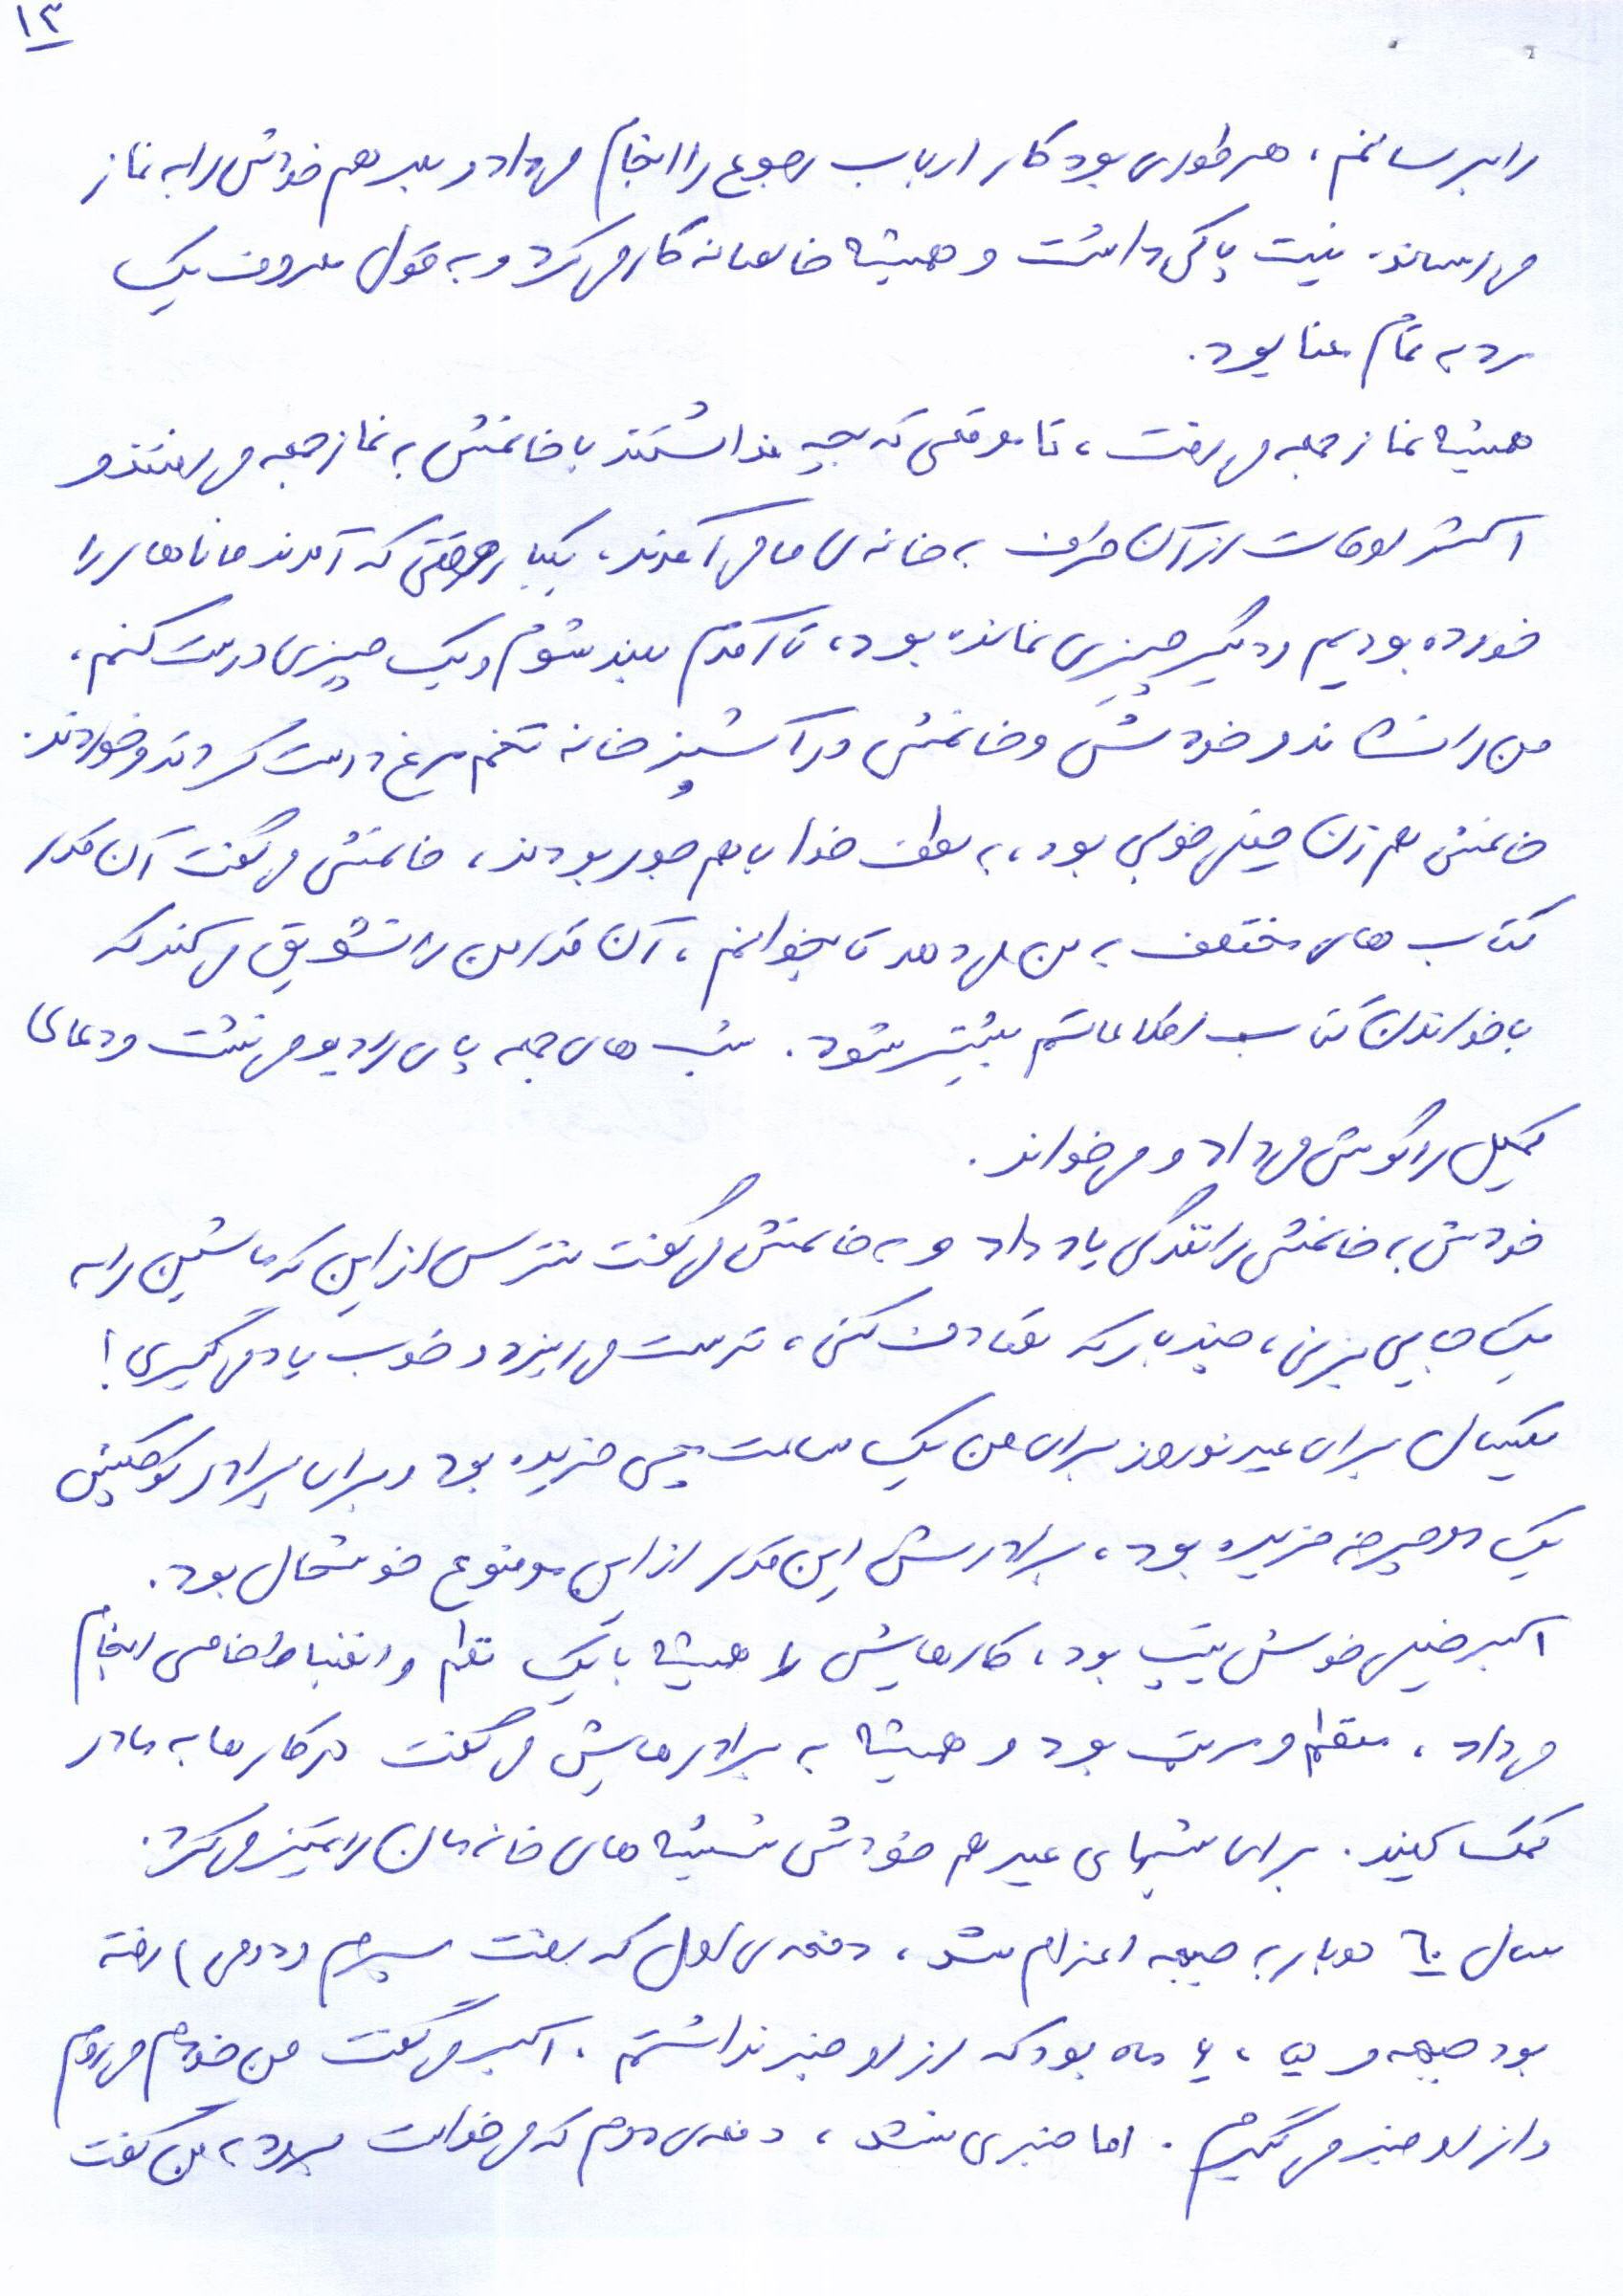 ۱۳
را برسانم، هر طوری بود کار ارباب رجوع را انجام می‌داد و بعد هم خودش را به نماز
می‌رساند. نیت پاکی داشت و همیشه خالصانه کار می‌کرد و به قول معروف یک
مرد به تمام معنا بود.
همیشه نماز جمعه می‌رفت، تا موقعی که بچه نداشتند با خانمش به نماز جمعه می‌رفتند و
اکثر اوقات از آن طرف به خانه‌ی ما می‌آمدند، یکبار موقعی که آمدند ما ناهار را
خورده بودیم و دیگر چیزی نمانده بود، تا آمدم بلند شوم و یک چیزی درست کنم،
من را نشاند و خودش و خانمش در آشپزخانه تخم مرغ درست کردند و خوردند.
خانمش هم زن خیلی خوبی بود، به لطف خدا با هم جور بودند، خانمش می‌گفت آن قدر
کتاب‌های مختلف به من می‌دهد تا بخوانم، آن قدر من را تشویق می‌کند که
با خواندن کتاب اطلاعاتم بیشتر شود. شب‌های جمعه پای رادیو می‌نشست و دعای
کمیل را گوش می‌داد و می‌خواند.
خودش به خانمش رانندگی یاد داد و به خانمش می‌گفت نترس از این که ماشین را به
یک جایی بزنی، چند بار که تصادف کنی، ترست می‌ریزد و خوب یاد می‌گیری!
یکسال برای عید نوروز برای من یک ساعت مچی خریده بود و برای برادر کوچکش
یک دوچرخه خریده بود، برادرش این قدر از این موضوع خوشحال بود.
اکبر خیلی خوش تیپ بود، کارهایش را همیشه با یک نظم و انضباط خاصی انجام
می‌داد، منظم و مرتب بود و همیشه به برادرهایش می‌گفت در کارها به مادر
کمک کنید. برای شبهای عید هم خودش شیشه‌های خانه‌مان را تمیز می‌کرد.
سال ۶۰ دوبار به جبهه اعزام شد، دفعه‌ی اول که رفت پسرم (دومی) رفته
بود جبهه و ۶ ماه بود که از او خبر نداشتم. اکبر می‌گفت من خودم می‌روم
و از او خبر می‌گیرم. اما خبری نشد، دفعه‌ی دوم که می‌خواست برود به من گفت